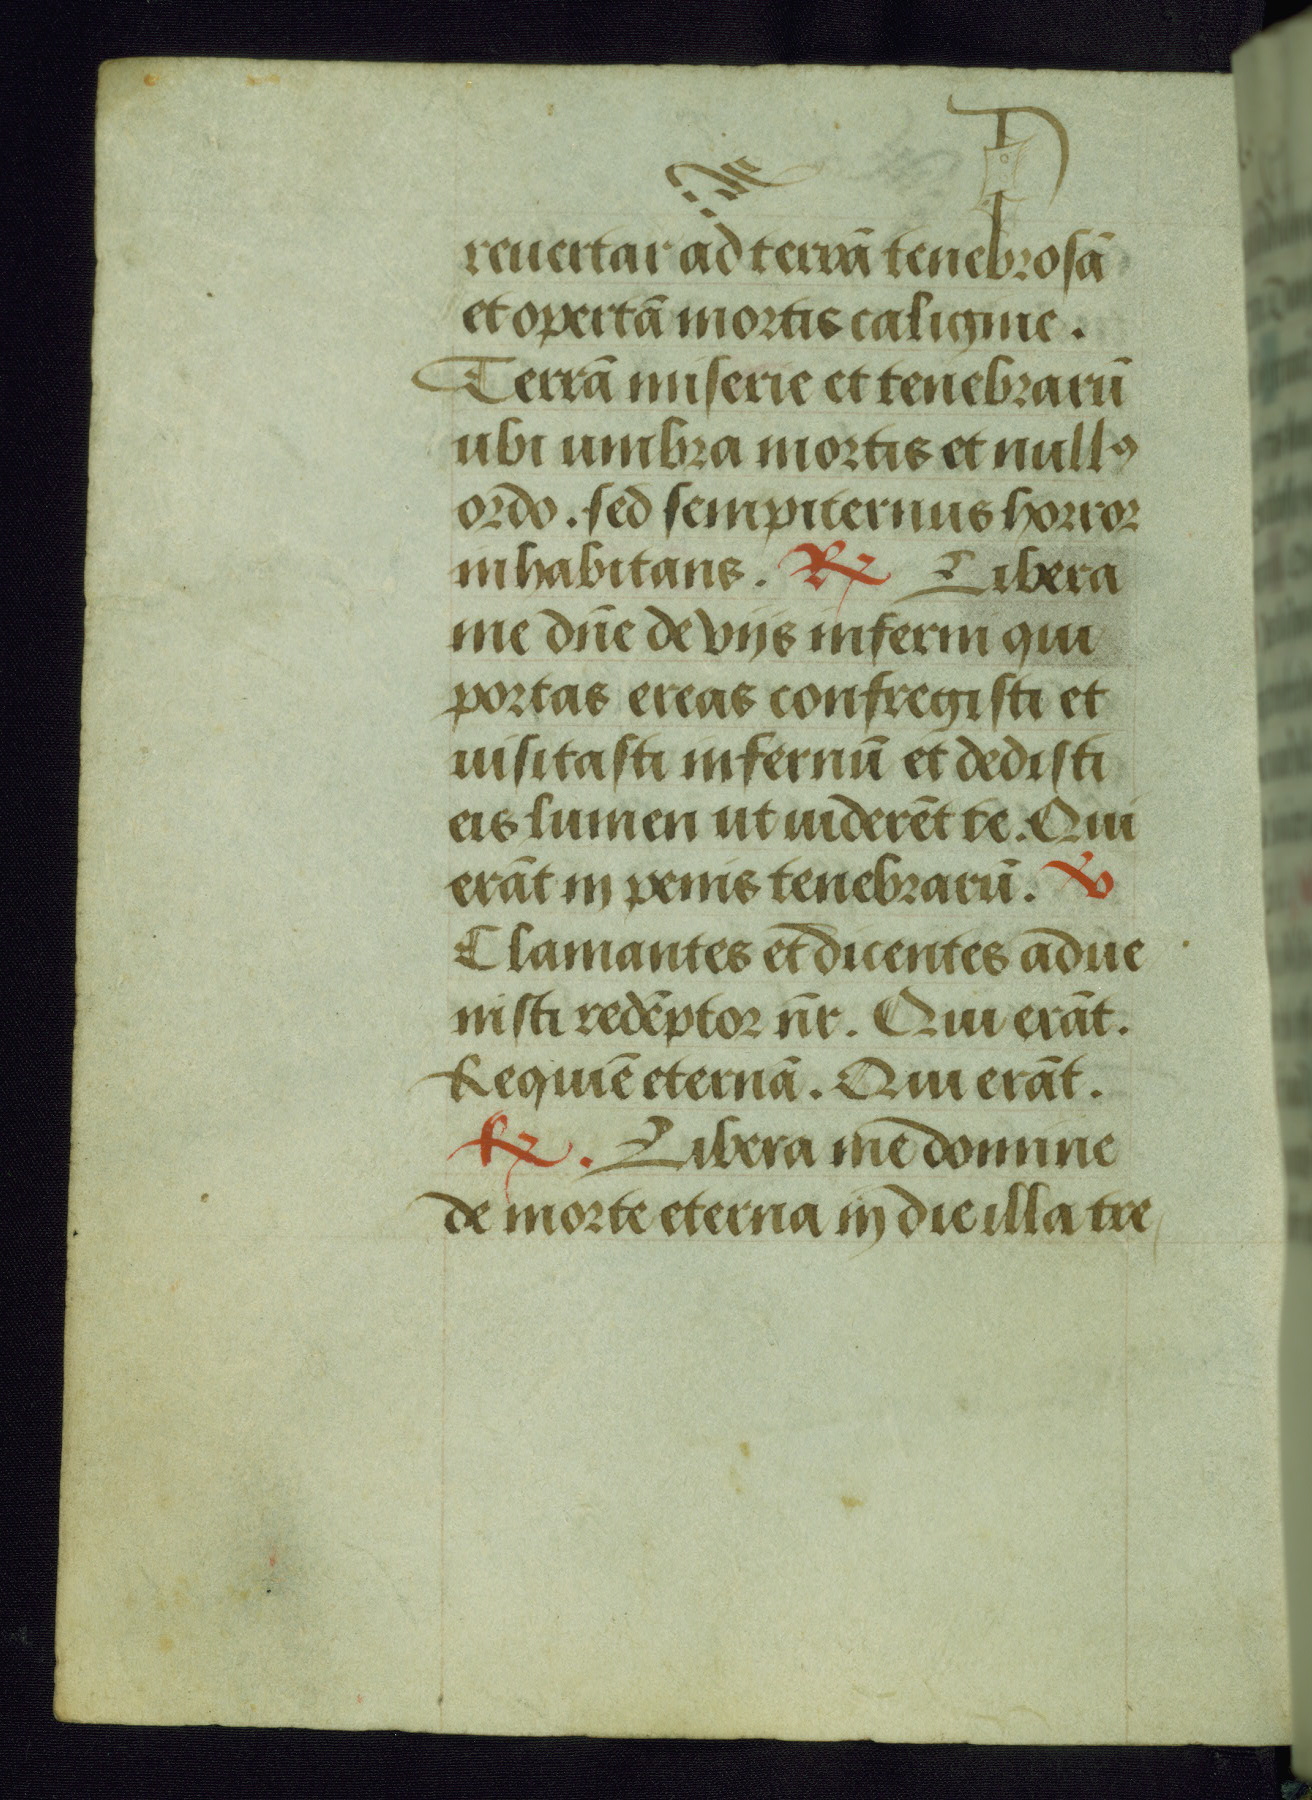 reuertar ad terrā tenebrosā
et opertā mortis caligine.
Terrā miserie et tenebrarū
ubi umbra mortis et nullꝰ
ordo. sed sempiternus horror
inhabitans. ℟ Libera
me dn̄e de viis inferni qui
portas ereas confregisti et
uisitasti infernū et dedisti
eis lumen ut uiderēt te. Qui
erāt in penis tenebrarū. ℣
Clamantes et dicentes adue
nisti redēptor nr̄. Qui erāt.
Requiē eternā. Qui erāt.
℟. Libera me domine
de morte eterna in die illa tre